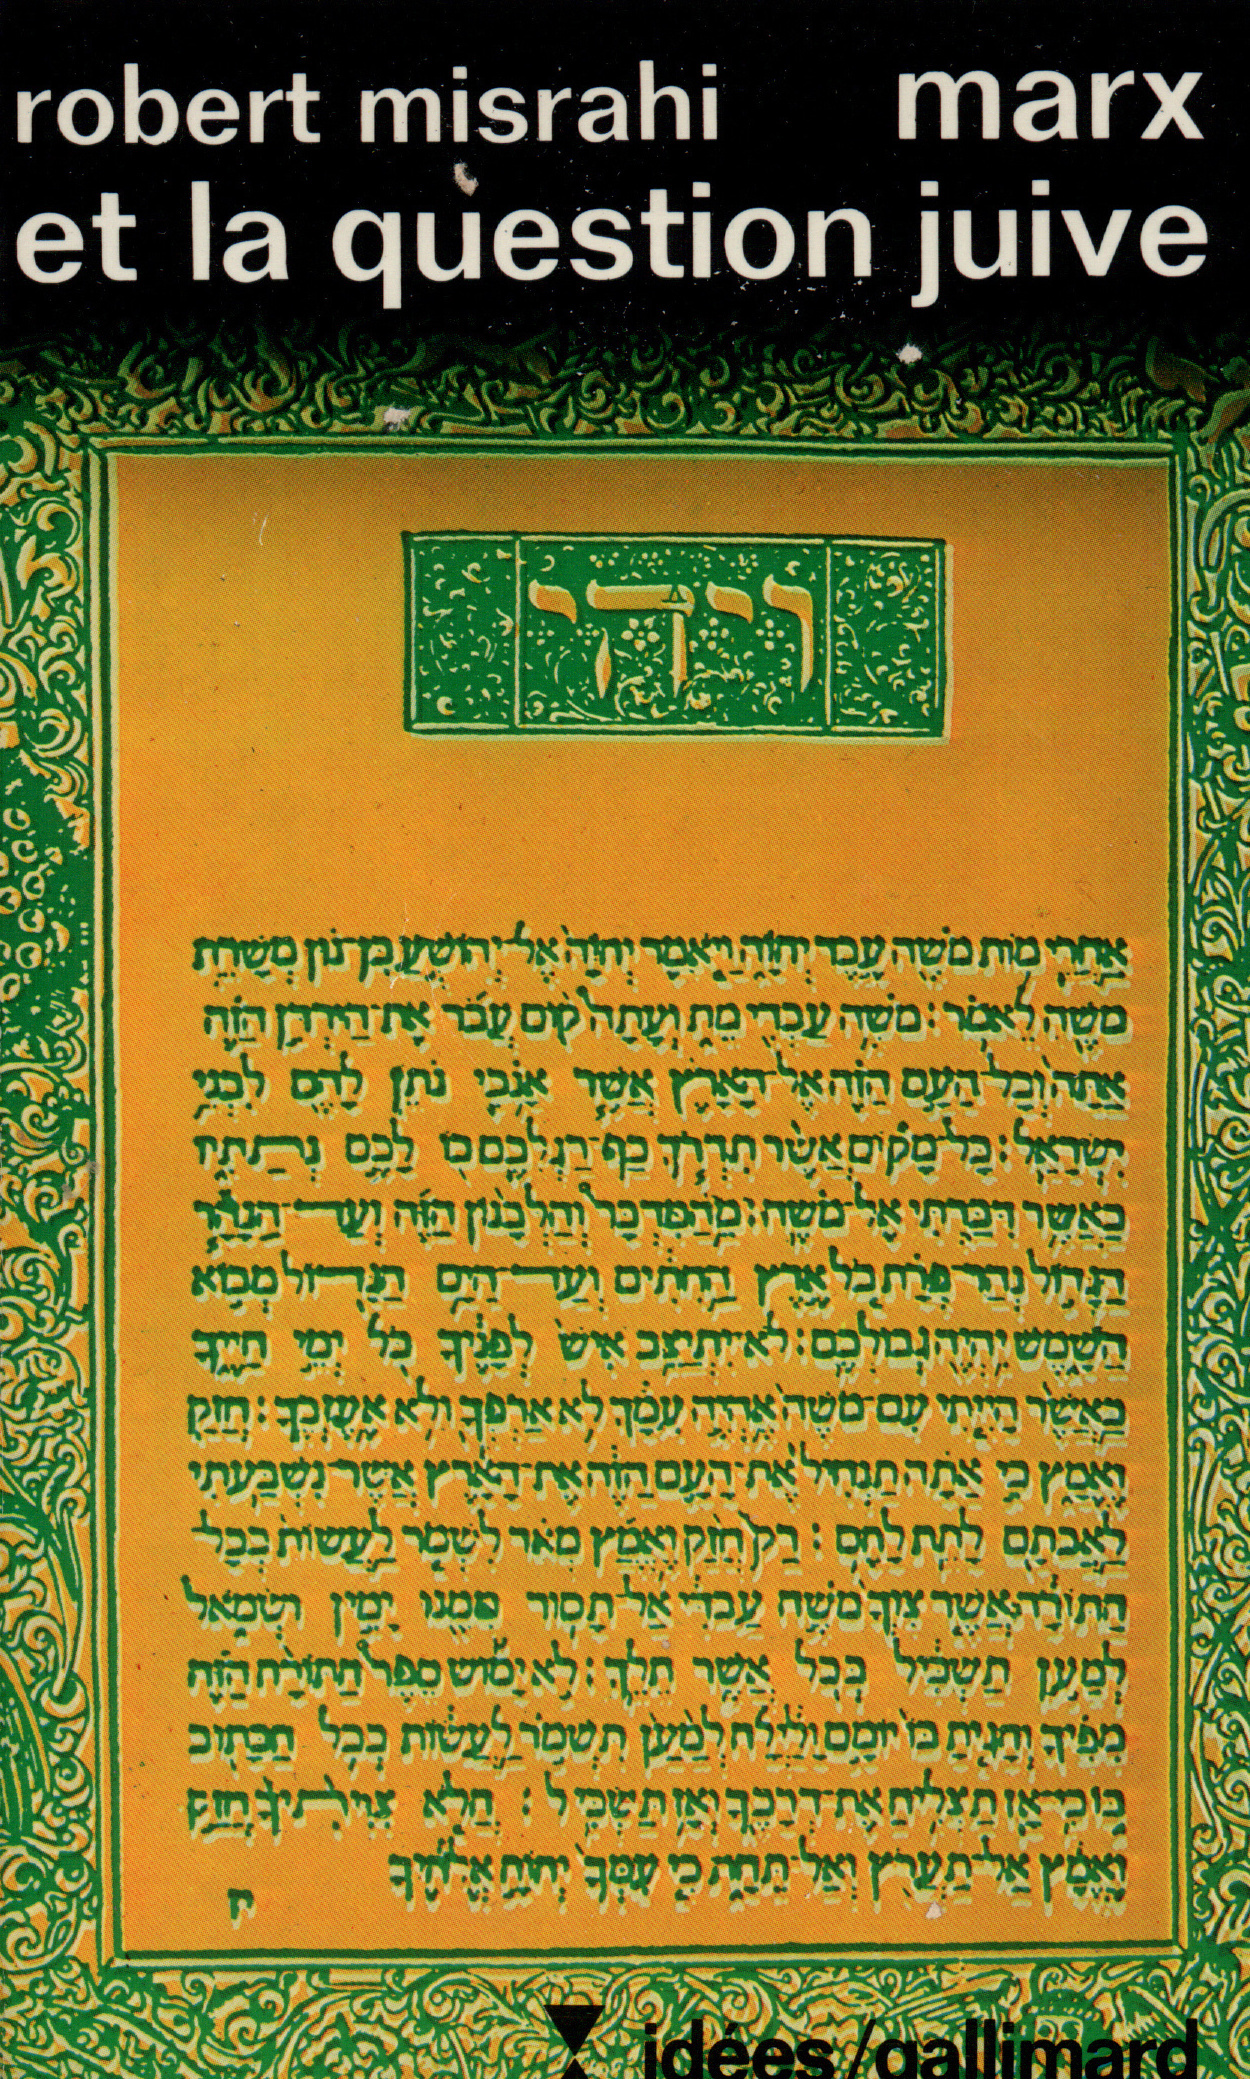 robert misrahi marx
et la question juive
ויהי
אחרי מות משה עבד יהוה ויאמר יהוה אל־יהושע בן־נון משרת
משה לאמר: משה עבדי מת ועתה קום עבר את־הירדן הזה
אתה וכל־העם הזה אל־הארץ אשר אנכי נתן להם לבני
ישראל: כל־מקום אשר תדרך כף־רגלכם בו לכם נתתיו
כאשר דברתי אל־משה: מהמדבר והלבנון הזה ועד־הנהר
הגדול נהר־פרת כל ארץ החתים ועד־הים הגדול מבוא
השמש יהיה גבולכם: לא־יתיצב איש לפניך כל ימי חייך
כאשר הייתי עם־משה אהיה עמך לא ארפך ולא אעזבך: חזק
ואמץ כי אתה תנחיל את־העם הזה את־הארץ אשר נשבעתי
לאבתם לתת להם: רק חזק ואמץ מאד לשמר לעשות ככל־
התורה אשר צוך משה עבדי אל־תסור ממנו ימין ושמאל
למען תשכיל בכל אשר תלך: לא־ימוש ספר התורה הזה
מפיך והגית בו יומם ולילה למען תשמר לעשות ככל הכתוב
בו כי־אז תצליח את־דרכך ואז תשכיל: הלא צויתיך חזק
ואמץ אל־תערץ ואל־תחת כי עמך יהוה אלהיך
idées/gallimard